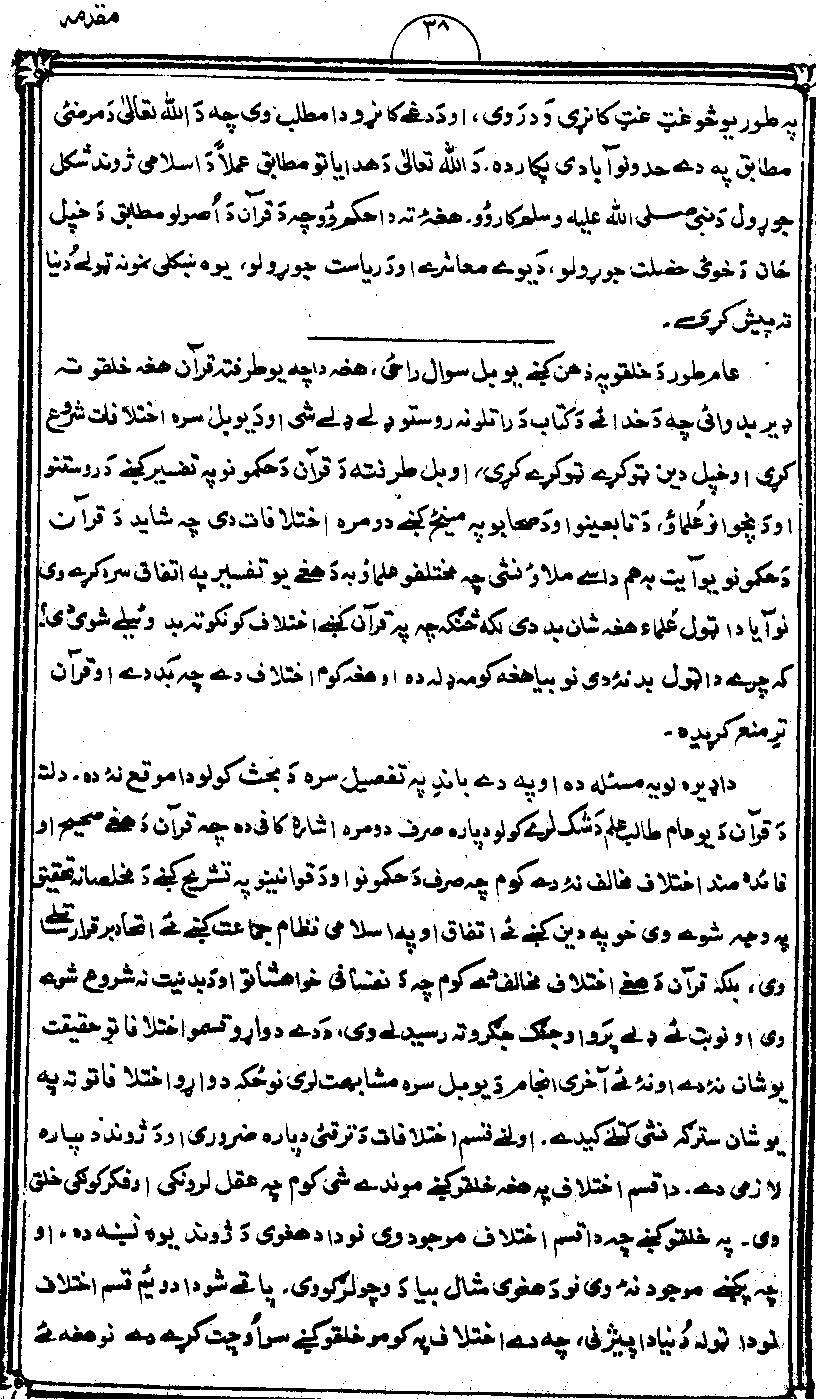 مقدمہ
۳۸
پہ طور يو څو غټ غټ کانړی وَدروی، او دَ دغے کانړو دا مطلب وی چہ دَ اللہ تعالیٰ دَ مرضئی
مطابق پہ دے حدونو آبادی پکار دہ. دَ اللہ تعالیٰ دَ ھدایاتو مطابق عملاً دَ اسلامی ژوند شکل
جوړول دَ نبی صلی اللہ علیہ وسلم کار وُو. ھغۂ تہ دا حکم وُو چہ دَ قرآن دَ اُصولو مطابق دَ خپل
ځان دَ خوئی خصلت جوړولو، دَ یوے معاشرے او دَ ریاست جوړولو، یوہ ښکلی نمونہ ټولے دُنیا
تہ پیش کړی۔
عام طور دَ خلقو پہ ذھن کښے یو بل سوال راځی، ھغہ دا چہ یو طرفتہ قرآن ھغہ خلقو تہ
ډیر بد وائی چہ دَ خدائے دَ کتاب دَ راتلو نہ روستو ډلے ډلے شی او دَ یو بل سرہ اختلافات شروع
کړی او خپل دین ټوکړے ټوکړے کړی، او بل طرفتہ دَ قرآن دَ حکمونو پہ تفسیر کښے دَ روستنو
او دَ پخوانو عُلماؤ، دَ تابعینو او دَ صحابو پہ مینځ کښے دومرہ اختلافات دی چہ شاید دَ قرآن
دَ حکمونو یو آیت بہ ھم داسے ملاؤ نشی چہ مختلفو علماؤ بہ دَ ھغے یو تفسیر پہ اتفاق سرہ کړے وی
نو آیا دا ټول عُلماء ھغہ شان بد دی لکہ څنګہ چہ پہ قرآن کښے اختلاف کونکو تہ بد وئیلے شوی دی؟
کہ چرے دا ټول بد نۂ دی نو بیا ھغہ کومہ ډلہ دہ او ھغہ کوم اختلاف دے چہ بَد دے او قرآن
ترِ منع کړیدہ۔
دا ډیرہ لویہ مسئلہ دہ او پہ دے باندِ پہ تفصیل سرہ دَ بحث کولو دا موقع نۂ دہ. دلتہ
دَ قرآن دَ یو عام طالب علم دَ شک لرے کولو دپارہ صرف دومرہ اشارہ کافی دہ چہ قرآن دَ ھغے صحیح او
فائدہ مند اختلاف مخالف نۂ دے کوم چہ صرف دَ حکمونو او دَ قوانینو پہ تشریح کښے دَ مخلصانہ تحقیق
پہ وجہ شوے وی خو پہ دین کښے ئے اتفاق او پہ اسلامی نظام جماعت کښے ئے اتحاد برقرار ساتلے
وی، بلکہ قرآن دَ ھغے اختلاف مخالف دے کوم چہ دَ نفسانی خواھشاتو او دَ بدنیت نہ شروع شوے
وی او نوبت ئے ډلے پَرو او جنګ جګړو تہ رسیدلے وی، دَ دے دواړو قسمو اختلافاتو حقیقت
یو شان نۂ دے او نۂ ئے آخری انجام دَ یو بل سرہ مشابھت لری نو ځکہ دواړو اختلافاتو تہ پہ
یو شان سترګہ نشی کتلے کیدے. اولنے قسم اختلافات دَ ترقئی دپارہ ضروری او دَ ژوند دپارہ
لازمی دے. دا قسم اختلاف پہ ھغہ خلقو کښے موندے شی کوم چہ عقل لرونکی او فکر کونکی خلق
وی۔ پہ خلقو کښے چہ دا قسم اختلاف موجود وی نو دا دھغوی دَ ژوند یوہ نښہ دہ. او
چہ پکښے موجود نۂ وی نو دَ ھغوی مثال بیا دَ وچو لرګو وی. پاتے شو دا دوئیم قسم اختلاف
نو دا ټولہ دُنیا دا پیژنی، چہ دے اختلاف پہ کومو خلقو کښے سر اُوچت کړے دے نو ھغہ ئے